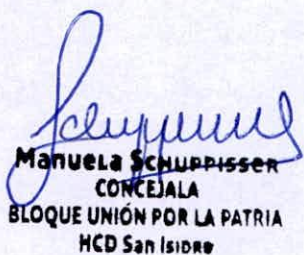 Manuela Schuppisser
CONCEJALA
BLOQUE UNIÓN POR LA PATRIA
HCD San Isidro